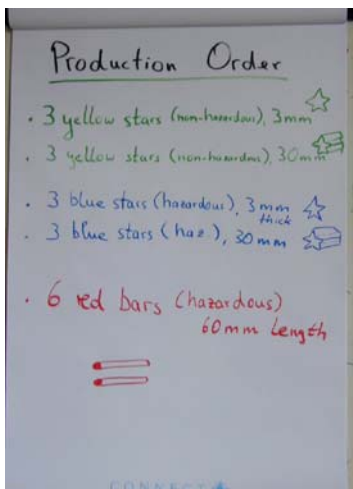 Production Order
. 3 yellow stars (non-hazardous), 3mm
. 3 yellow stars (non-hazardous), 30mm
. 3 blue stars (hazardous), 3mm
thick
. 3 blue stars (haz.), 30mm
. 6 red bars (hazardous)
60mm Length
CONNECT